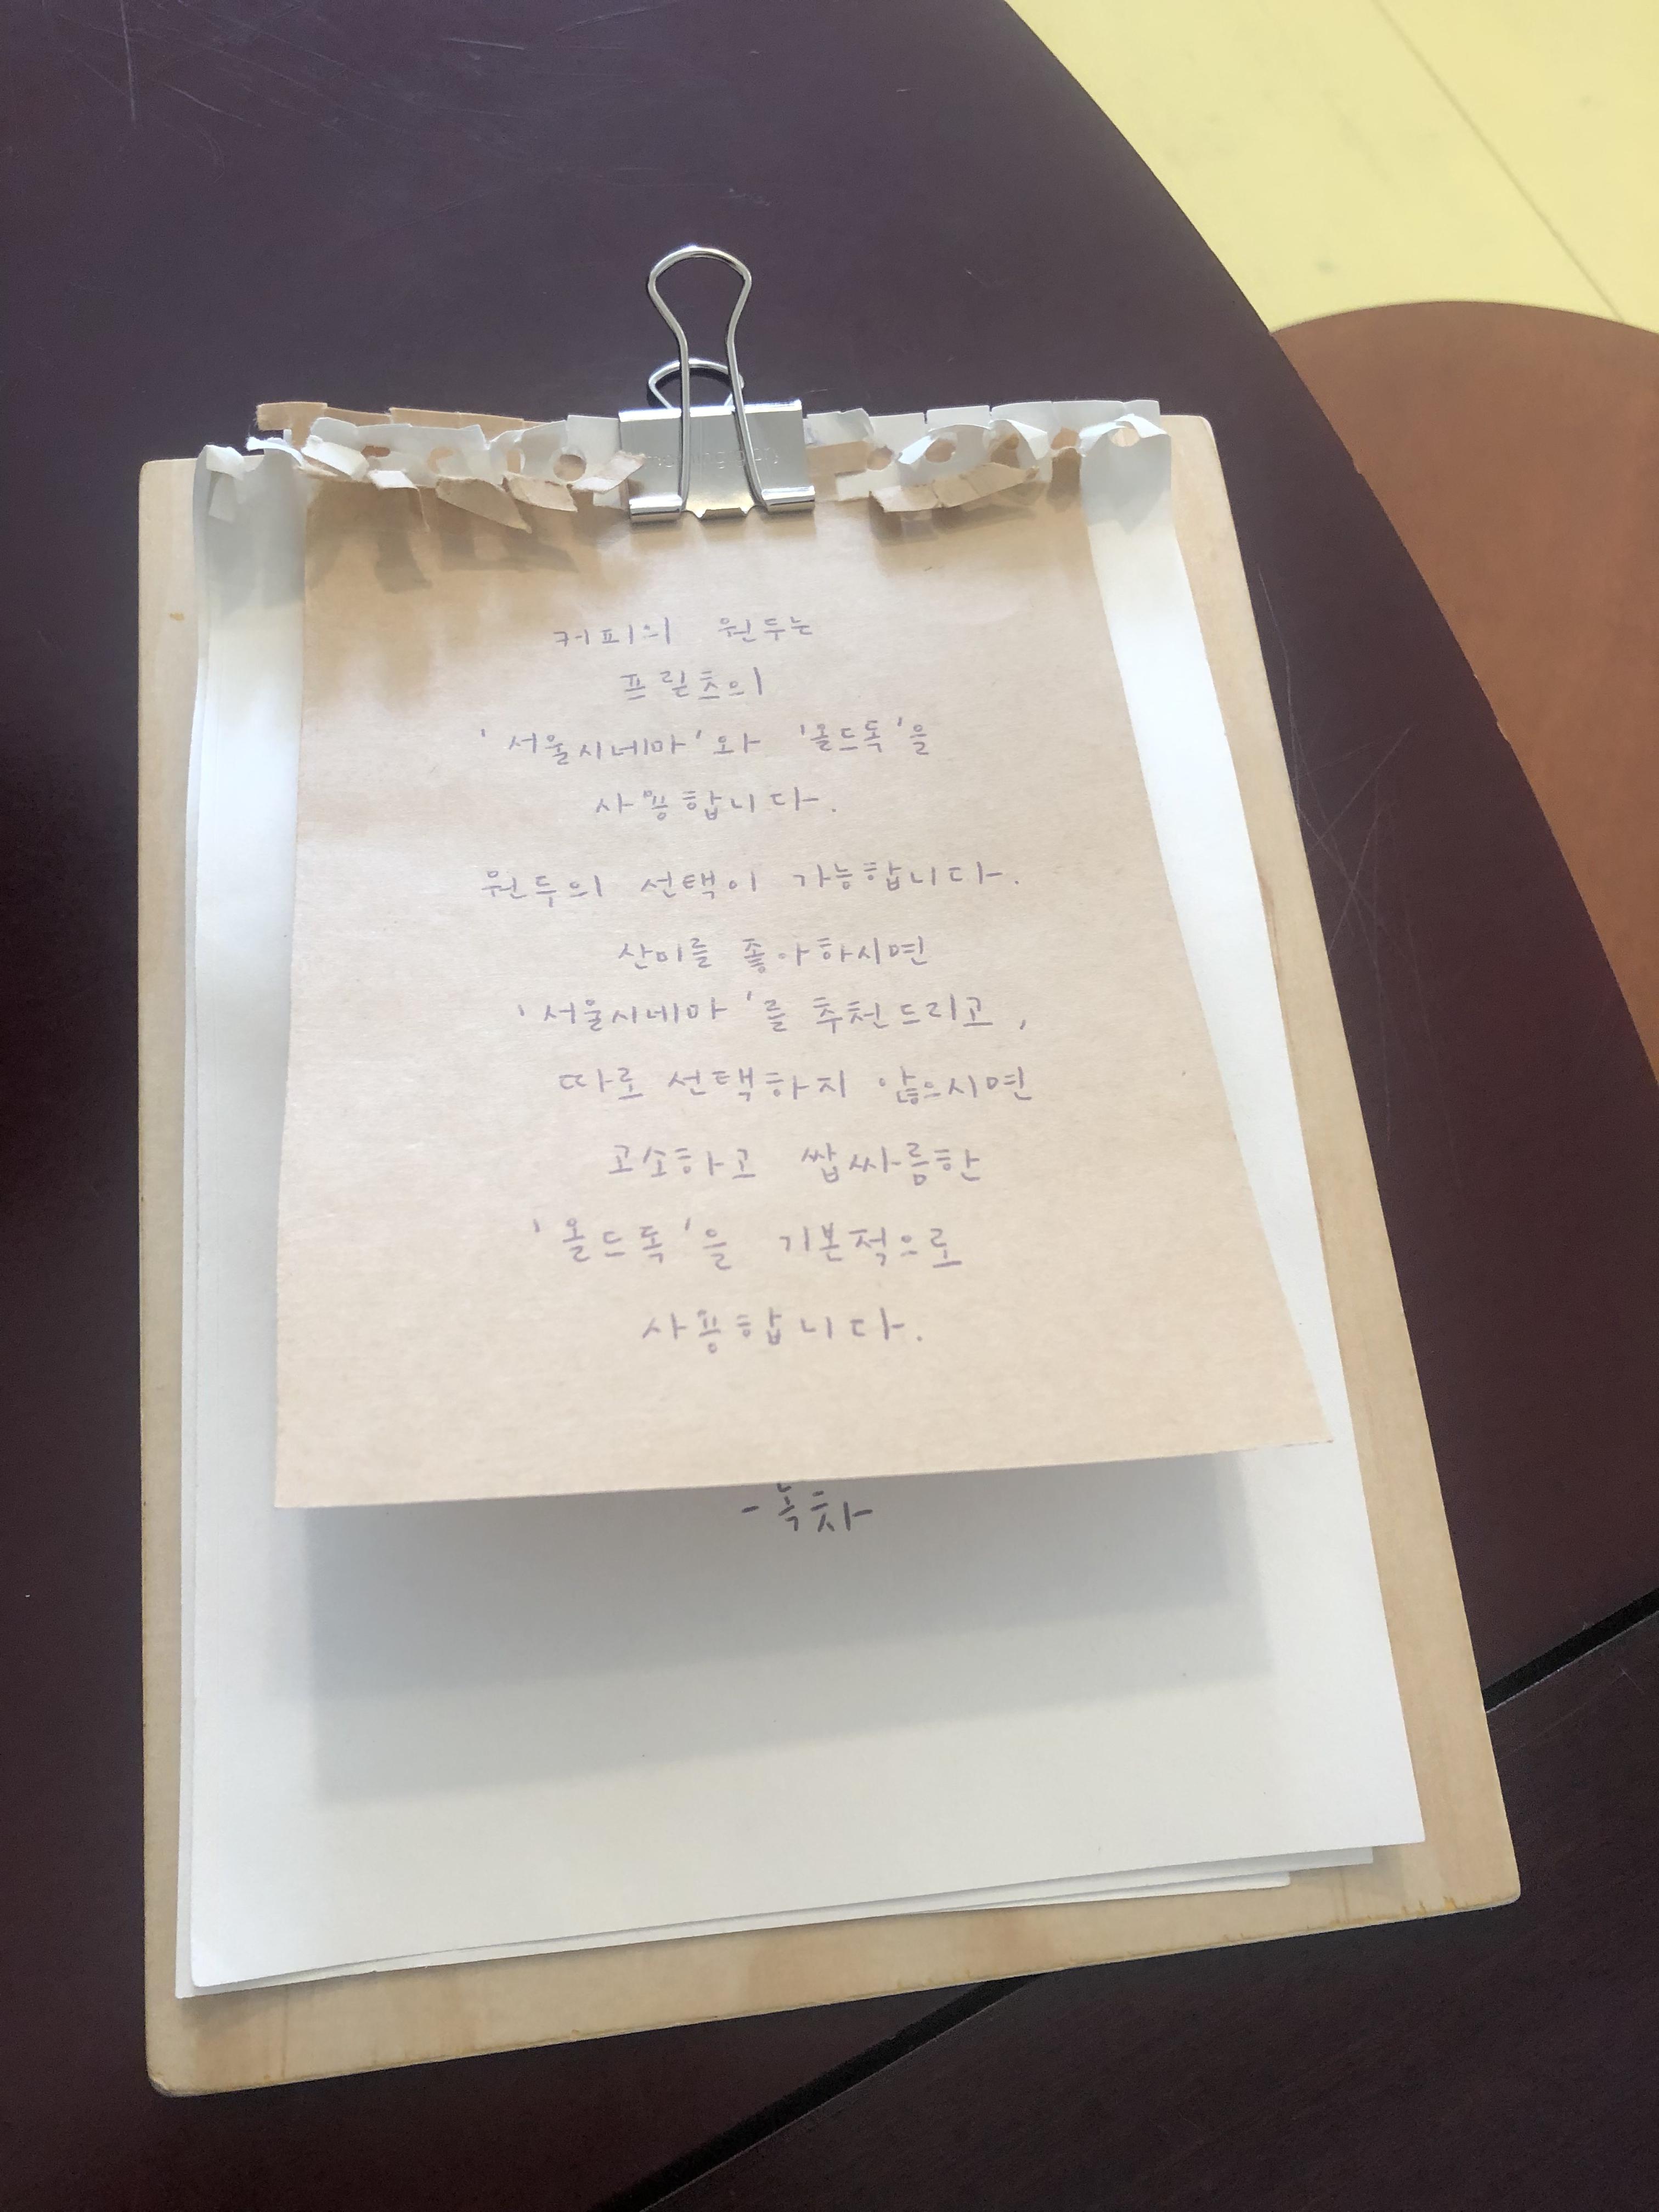 커피의 원두는
프릳츠의
'서울시네마'와 '올드독'을
사용합니다.
원두의 선택이 가능합니다.
산미를 좋아하시면
'서울시네마'를 추천드리고,
따로 선택하지 않으시면
고소하고 쌉싸름한
'올드독'을 기본적으로
사용합니다.
-녹차